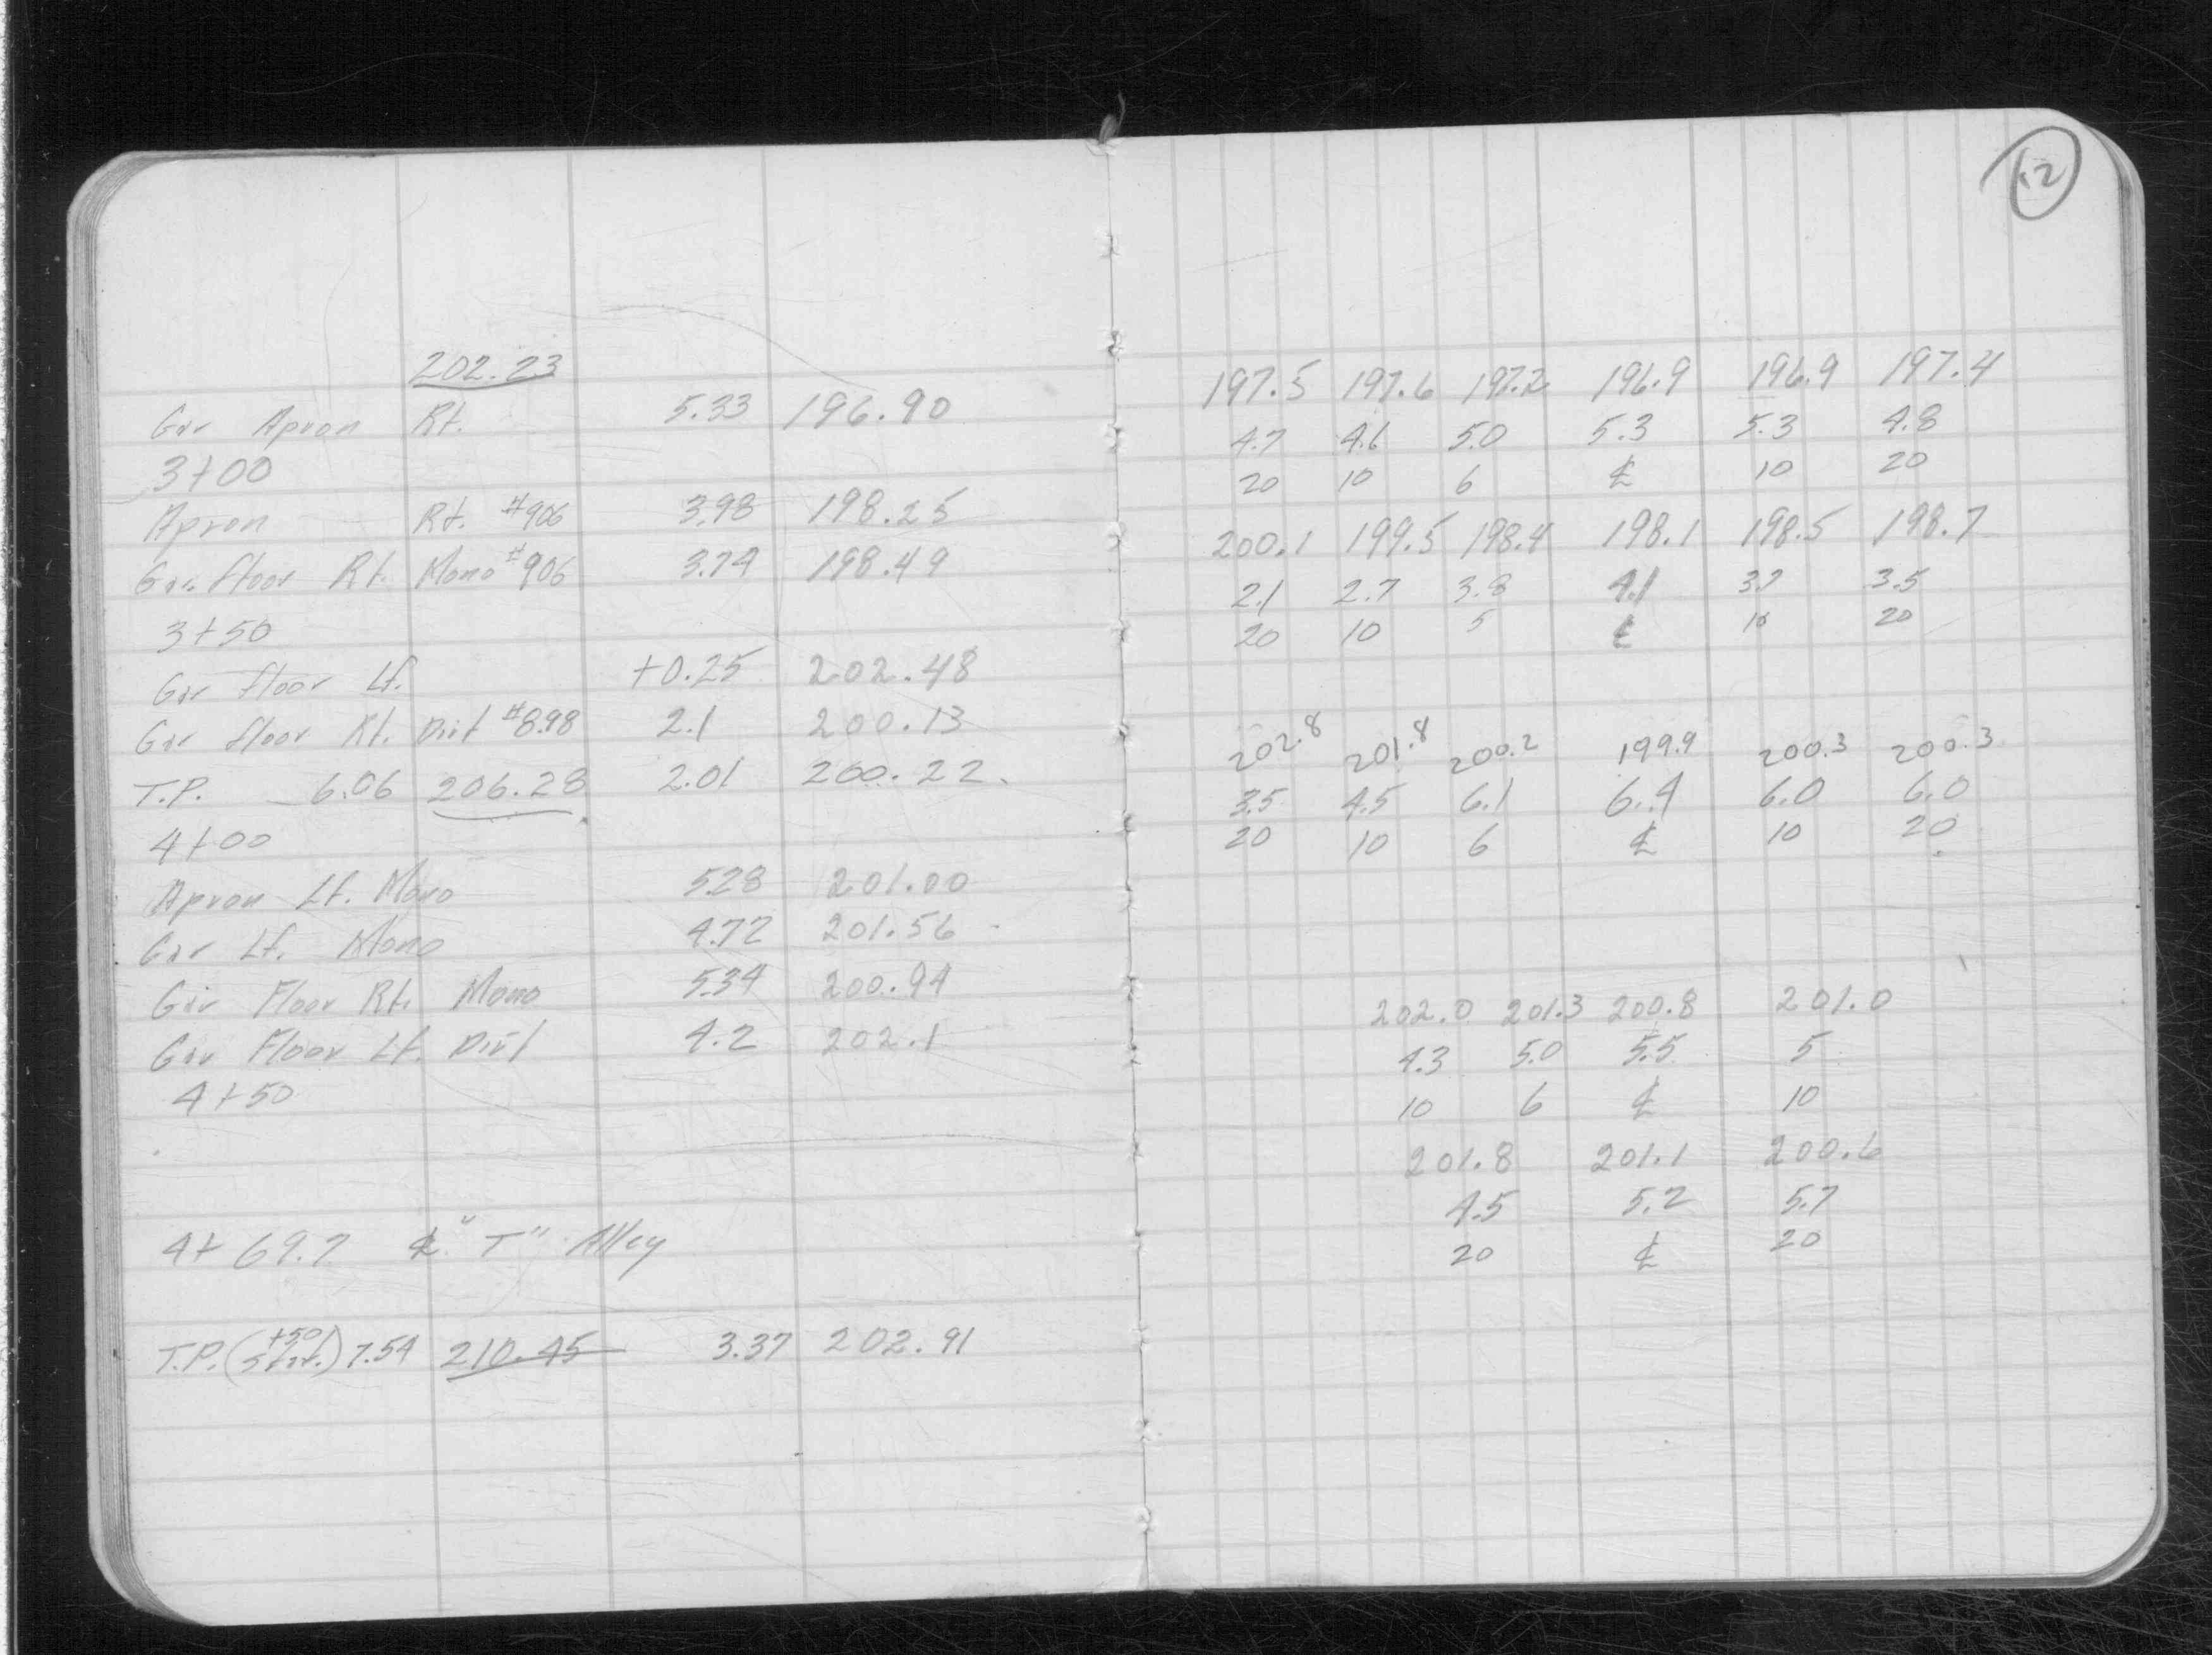 12
202.23
Gar Apron Rt. 5.33 196.90
3+00
Apron Rt. #906 3.98 198.25
Gar. floor Rt. Mono #906 3.74 198.49
3+50
Gar floor Lf. +0.25 202.48
Gar floor Rt. Dirt #898 2.1 200.13
T.P. 6.06 206.28 2.01 200.22
4+00
Apron Lf. Mono 5.28 201.00
Gar Lf. Mono 4.72 201.56
Gar Floor Rt. Mono 5.34 200.94
Gar Floor Lf. Dirt 4.2 202.1
4+50
4+69.7 ℄ "T" Alley
T.P. (+50 Stat.) 7.54 210.45 3.37 202.91
197.5 197.6 197.2 196.9 196.9 197.4
4.7 4.6 5.0 5.3 5.3 4.8
20 10 6 ℄ 10 20
200.1 199.5 198.4 198.1 198.5 198.7
2.1 2.7 3.8 4.1 3.7 3.5
20 10 5 ℄ 10 20
202.8 201.8 200.2 199.9 200.3 200.3
3.5 4.5 6.1 6.4 6.0 6.0
20 10 6 ℄ 10 20
202.0 201.3 200.8 201.0
4.3 5.0 5.5 5
10 6 ℄ 10
201.8 201.1 200.6
4.5 5.2 5.7
20 ℄ 20